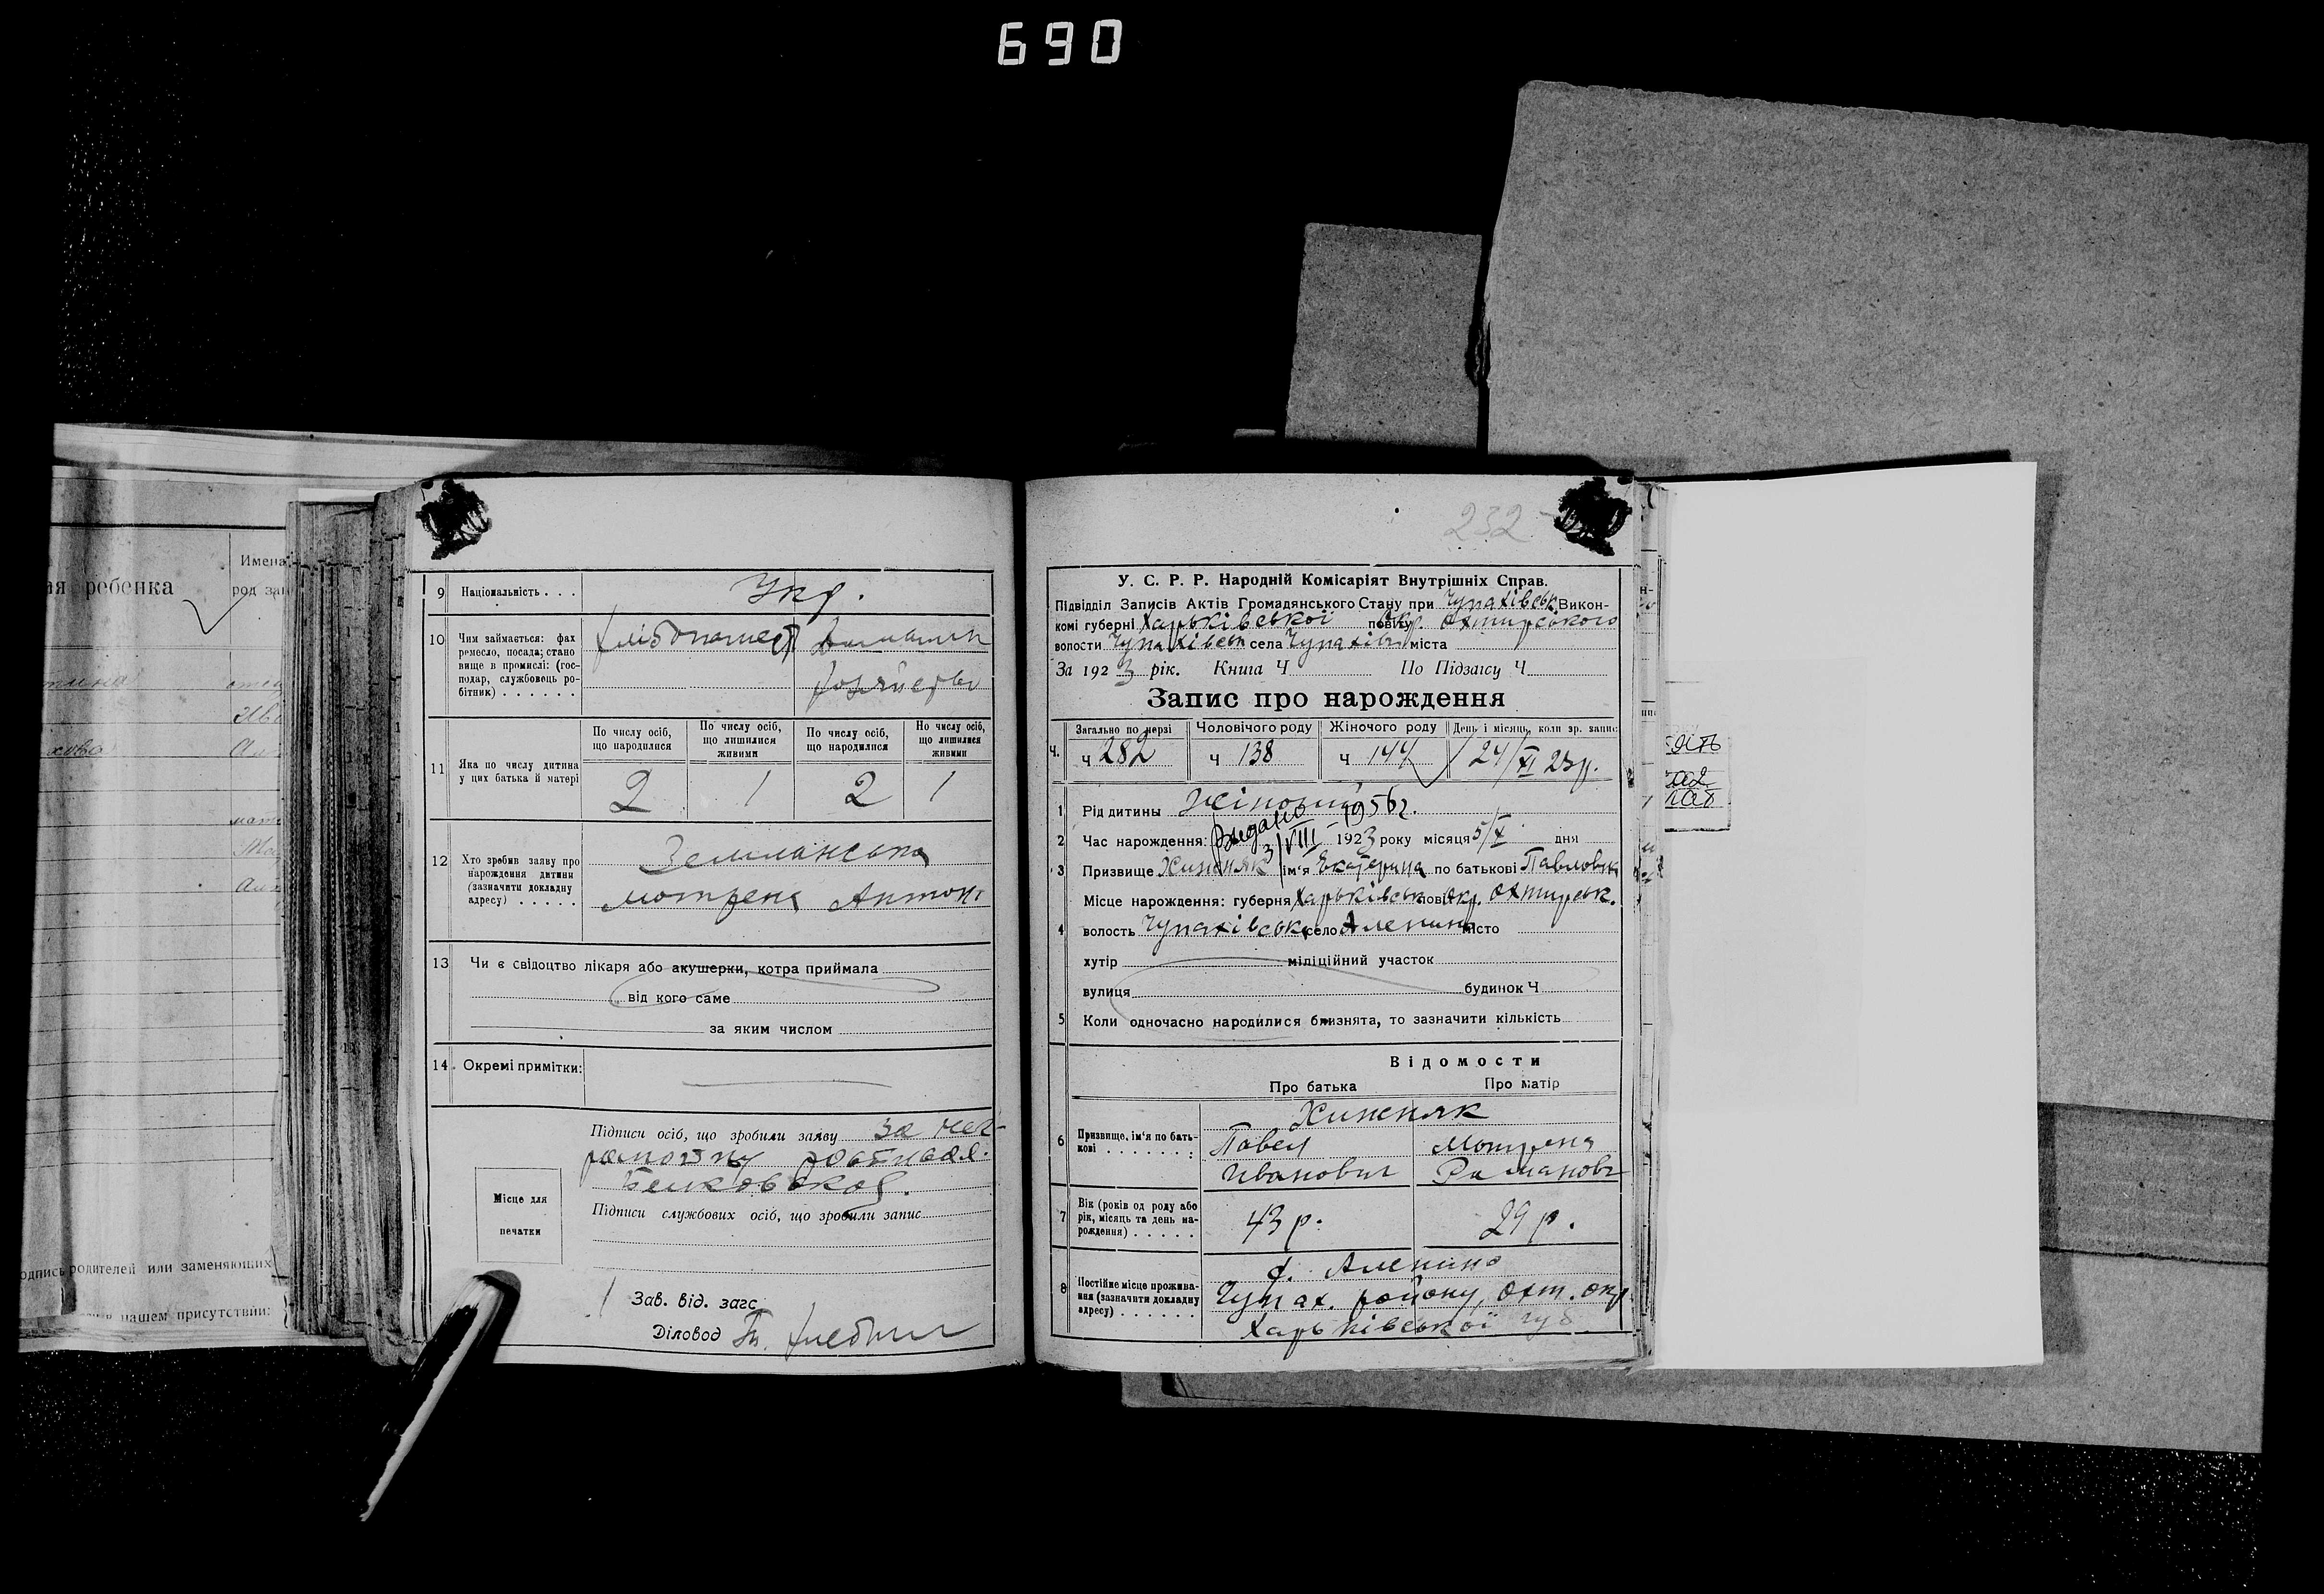 690
ая ребенка
Имена
род за
отец
9 Національність . . . Укр.
10 Чим займається: фах
ремесло, посада; стано
вище в промислі: (гос-
подар, службовець ро-
бітник) . . . . . .
хліборобст домашн
хозяйство
По числу осіб,
що народилися
По числу осіб,
що лишилися
живими
По числу осіб,
що народилися
Но числу осіб,
що лишилися
живими
11 Яка по числу дитина
у цих батька й матері
2 1 2 1
12 Хто зробив заяву про
народження дитини
(зазначити докладну
адресу) . . . . .
Землянська
мотрена Антон
13 Чи є свідоцтво лікаря або акушерки, котра приймала
від кого саме
за яким числом
14. Окремі примітки:
Підписи осіб, що зробили заяву за нег-
рамотну
Підписи службових осіб, що зробили запис
Місце для
печатки
Зав. від. загс
Діловод
одпись родителей или заменяющих
нашем присутствии:
232
У. С. Р. Р. Народній Комісаріят Внутрішніх Справ.
Підвідділ Записів Актів Громадянського Стану при Чупахівськ Викон-
комі губерні Харьківської повіту окр. Охтирського
волости Чупахівськ села Чупахівк міста
За 1923 рік. Книга Ч По Підзагсу Ч
Запис про народження
Загально по черзі Чоловічого роду Жіночого роду День і місяць, коли зр. запис
Ч. ч 282 ч 138 ч 144 24/XI 23р.
1 Рід дитини Жіночий
Видано 3/VIII - 1956г.
2 Час народження: 1923 року місяця 5/X дня
3 Призвище Хижняк ім'я Екатерина по батькові Павловна
4 Місце народження: губерня Харьківськ пові окр. Охтирськ.
волость Чупахівська село Аленино місто
хутір міліційний участок
вулиця будинок Ч
5 Коли одночасно народилися близнята, то зазначити кількість
Відомости
Про батька Про матір
6 Призвище, ім'я по бать-
кові . . . . . . . :
Хижняк
Павел Мотрена
Иванович Романовн
7 Вік (років од роду або
рік, місяць та день на-
рождення) . . . . .
43 р. 29 р.
8 Постійне місце прожива-
ння (зазначити докладну
адресу) . . . . . .
с. Аленино
Чупах. району, Охт. окр.
Харьківської губ